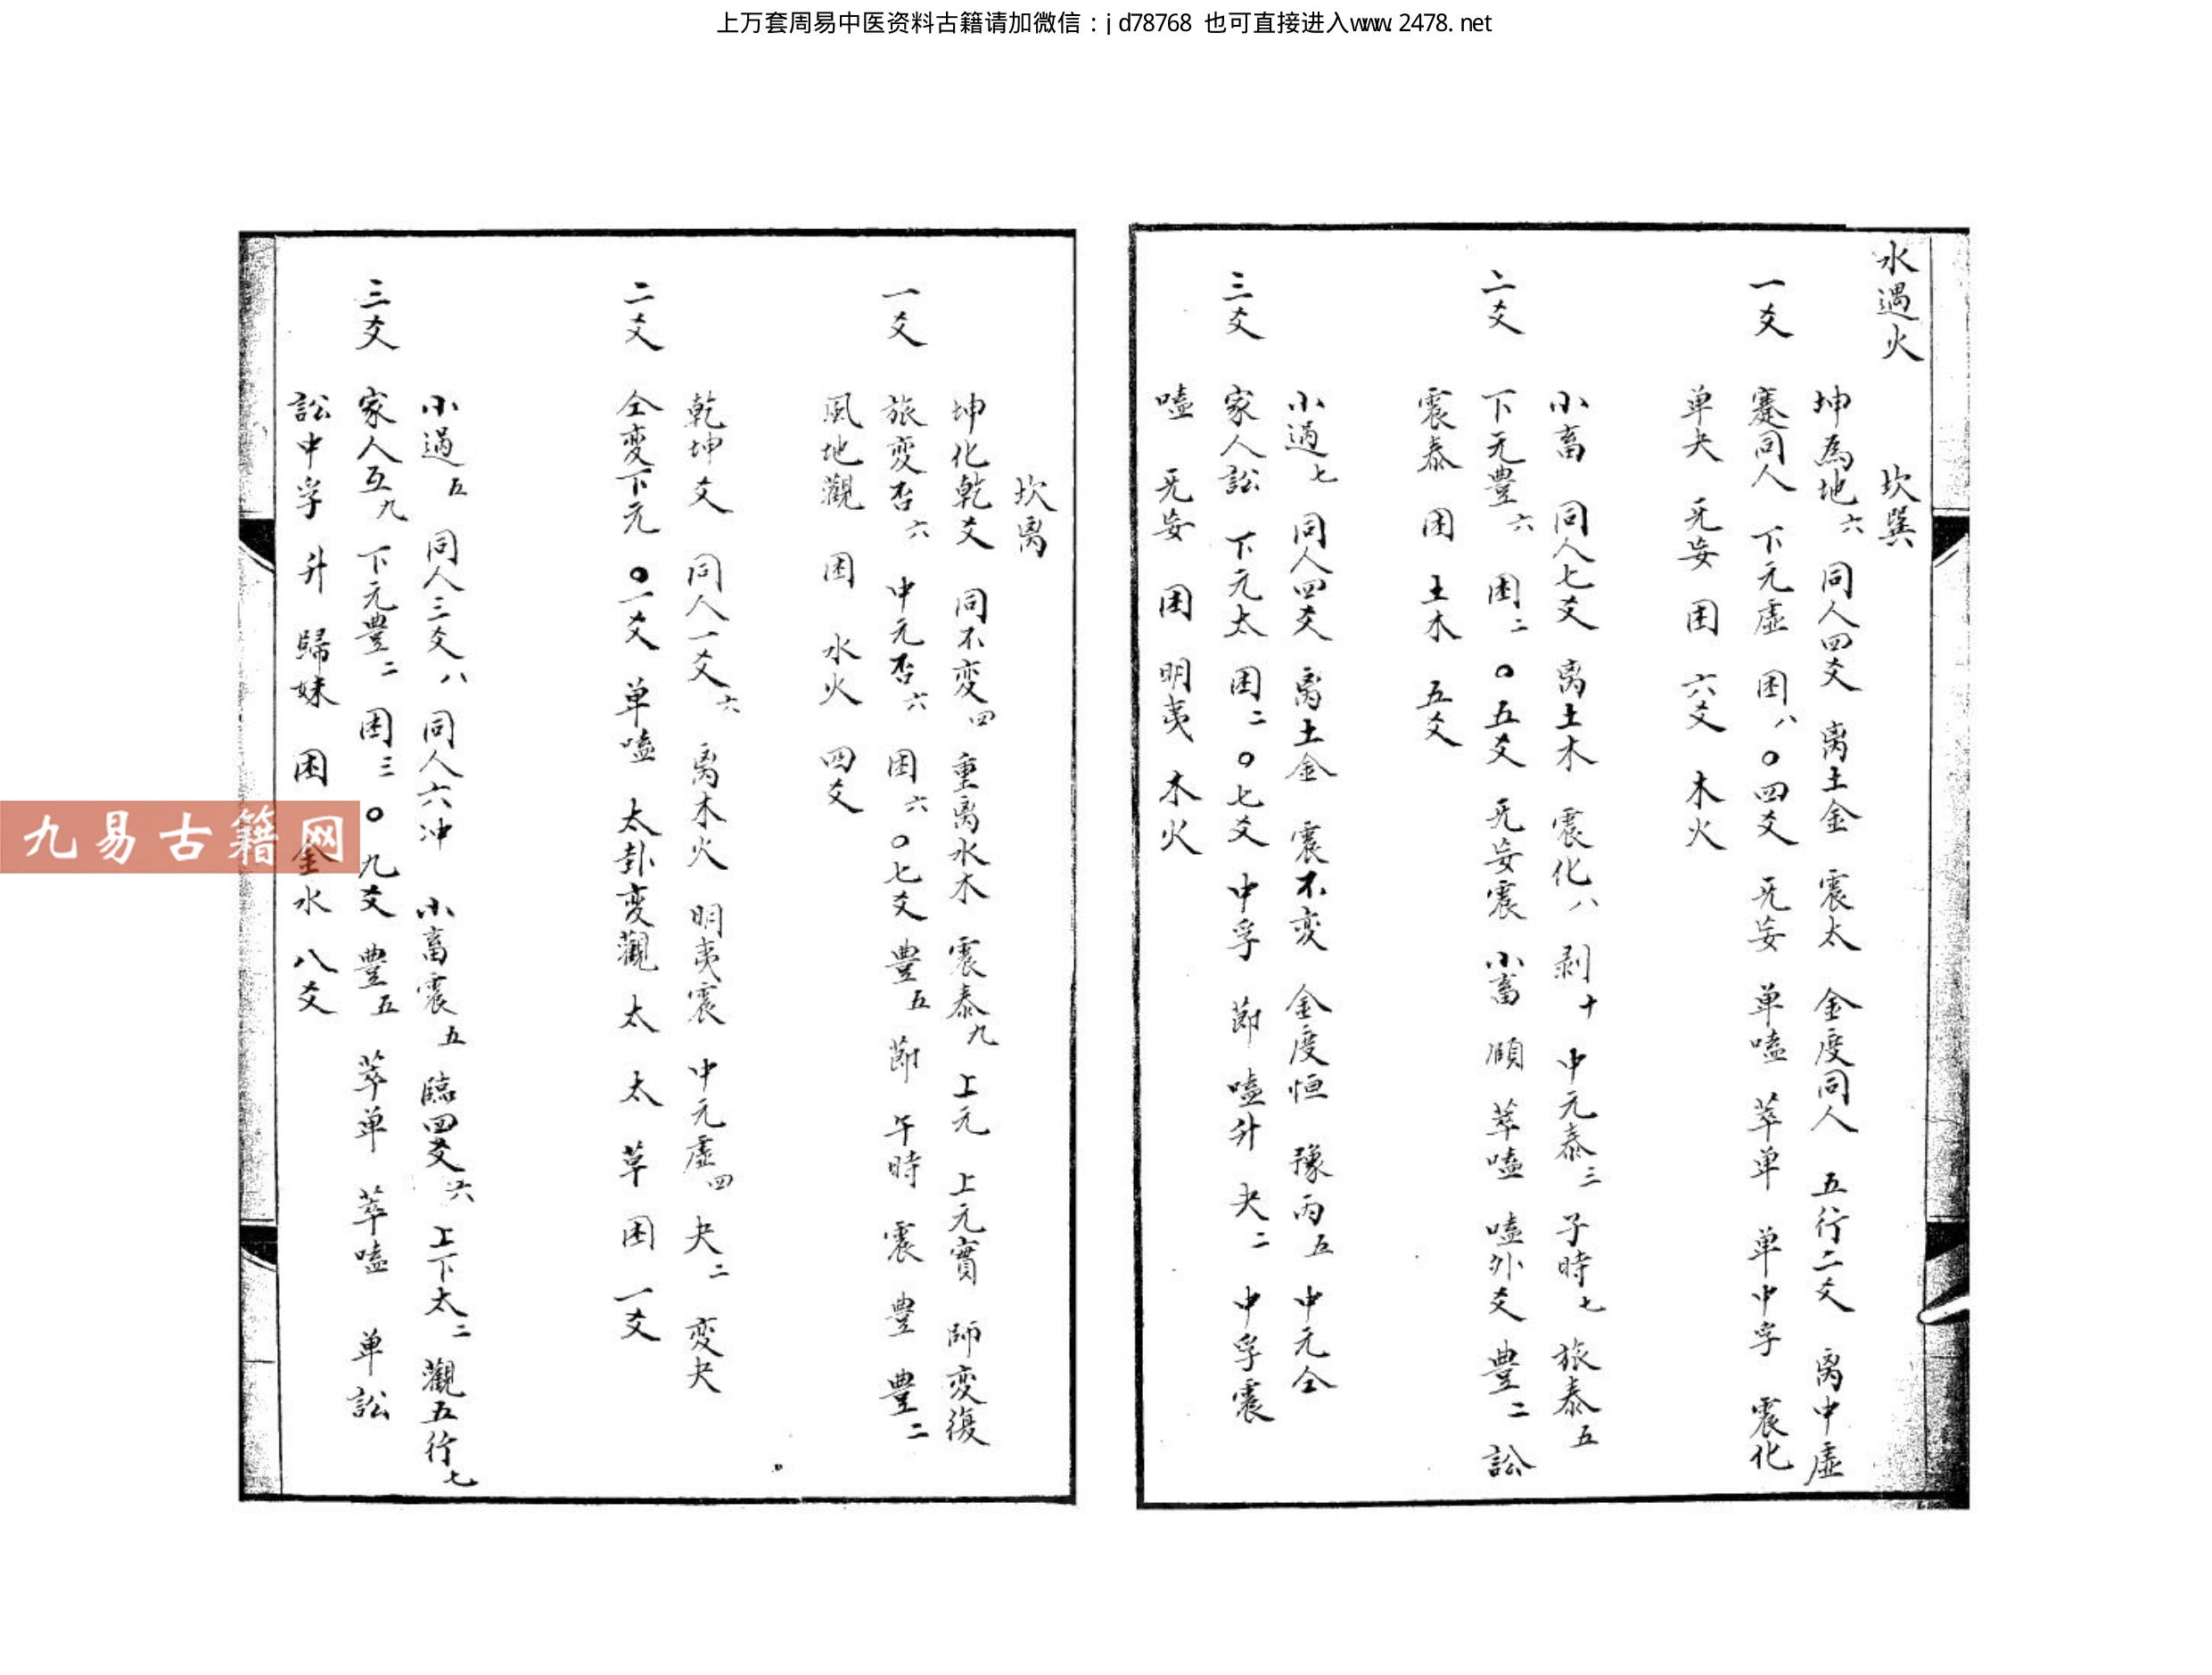 上万套周易中医资料古籍请加微信：jd78768 也可直接进入www.2478.net
水遇火 坎巽
坤為地六 同人四爻 离土金 震太 金度同人 五行二爻 离中虛
一爻 蹇同人 下元虛 困八 〇四爻 旡妄 单嗑 萃单 单中孚 震化
单夬 旡妄 困 六爻 木火
小畜 同人七爻 离土木 震化八 剥十 中元泰三 子時七 旅泰五
二爻 下元豊六 困二 〇五爻 旡妄震 小畜 頤 萃嗑 嗑外爻 豊二 訟
震泰 困 土木 五爻
小過七 同人四爻 离土金 震不変 金度恒 豫丙五 中元仝
三爻 家人訟 下元太 困二 〇七爻 中孚 節 嗑升 夬二 中孚震
嗑 旡妄 困 明夷 木火
坎离
坤化乾爻 同不変四 重离水木 震泰九 上元 上元實 師変復
一爻 旅変否六 中元否六 困六 〇七爻 豊五 節 午時 震 豊 豊二
風地觀 困 水火 四爻
乾坤爻 同人一爻六 离木火 明夷震 中元虛四 夬二 変夬
二爻 仝変下元 〇一爻 单嗑 太卦変觀 太 太 草 困 一爻
小過五 同人三爻八 同人六冲 小畜震五 臨四爻六 上下太二 觀五行七
三爻 家人互九 下元豊二 困三 〇九爻 豊五 萃单 萃嗑 单訟
訟中孚 升 歸妹 困 金水 八爻
九易古籍网